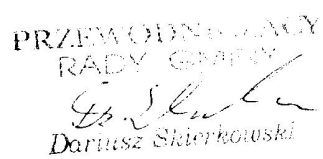 PRZEWODNICZĄCY
RADY GMINY
Dariusz Skierkowski